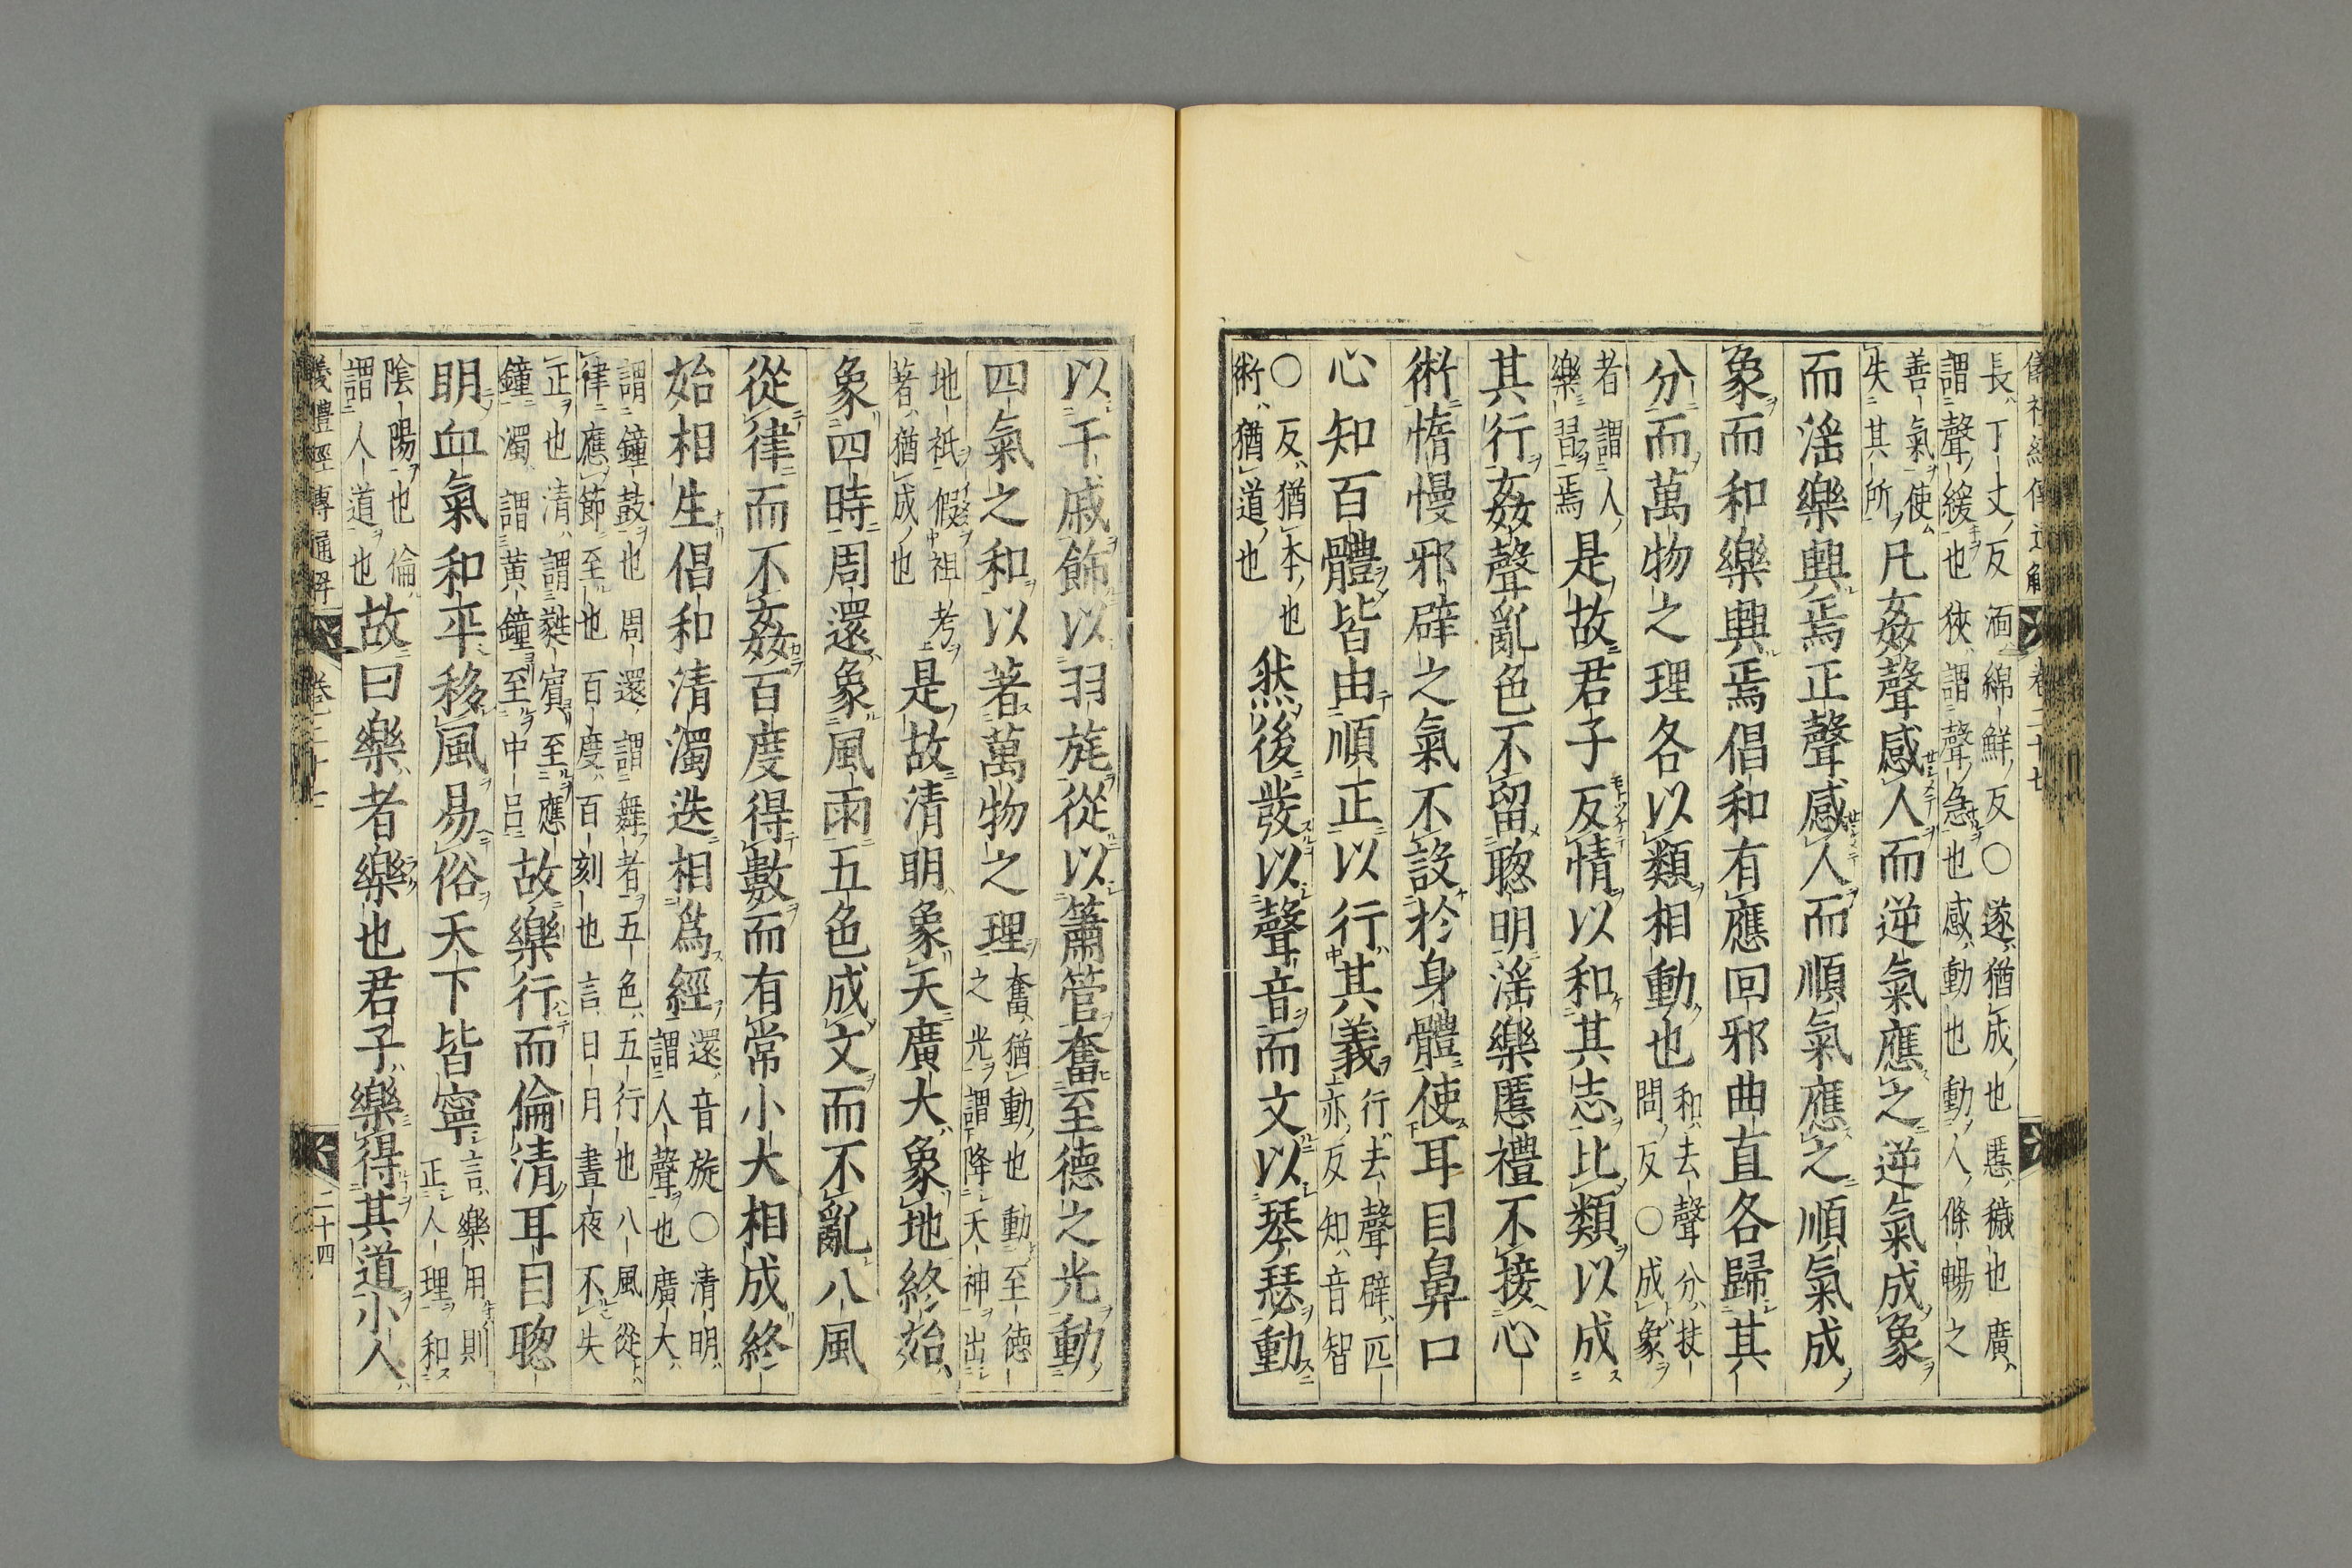 儀禮經傳通解 卷二十七
長丁丈反湎綿鮮反○遂猶成也慝穢也廣
謂聲緩也狹謂聲急也感動也動人條暢之
善氣使
失其所凡姦聲感人而逆氣應之逆氣成象
而滛樂興焉正聲感人而順氣應之順氣成
象而和樂興焉倡和有應回邪曲直各歸其
分而萬物之理各以類相動也和去聲分扶
問反○成象
者謂人
樂習焉是故君子反情以和其志比類以成
其行姦聲亂色不留聦明滛樂慝禮不接心
術惰慢邪辟之氣不設於身體使耳目鼻口
心知百體皆由順正以行其義行去聲辟匹
亦反知音智
○反猶本也
術猶道也然後發以聲音而文以琴瑟動
以干戚飾以羽旄從以簫管奮至德之光動
四氣之和以著萬物之理奮猶動也動至德
之光謂降天神出
地祇假祖考
著猶成也是故清明象天廣大象地終始
象四時周還象風雨五色成文而不亂八風
從律而不姦百度得數而有常小大相成終
始相生倡和清濁迭相爲經還音旋○清明
謂人聲也廣大
謂鐘鼓也周還謂舞者五色五行也八風從
律應節至也百度百刻也言日月晝夜不失
正也清謂蕤賓至應
鐘濁謂黃鐘至中呂故樂行而倫清耳目聦
明血氣和平移風易俗天下皆寧言樂用則
正人理和
陰陽也倫
謂人道也故曰樂者樂也君子樂得其道小人
儀禮經傳通解 卷二十七 二十四